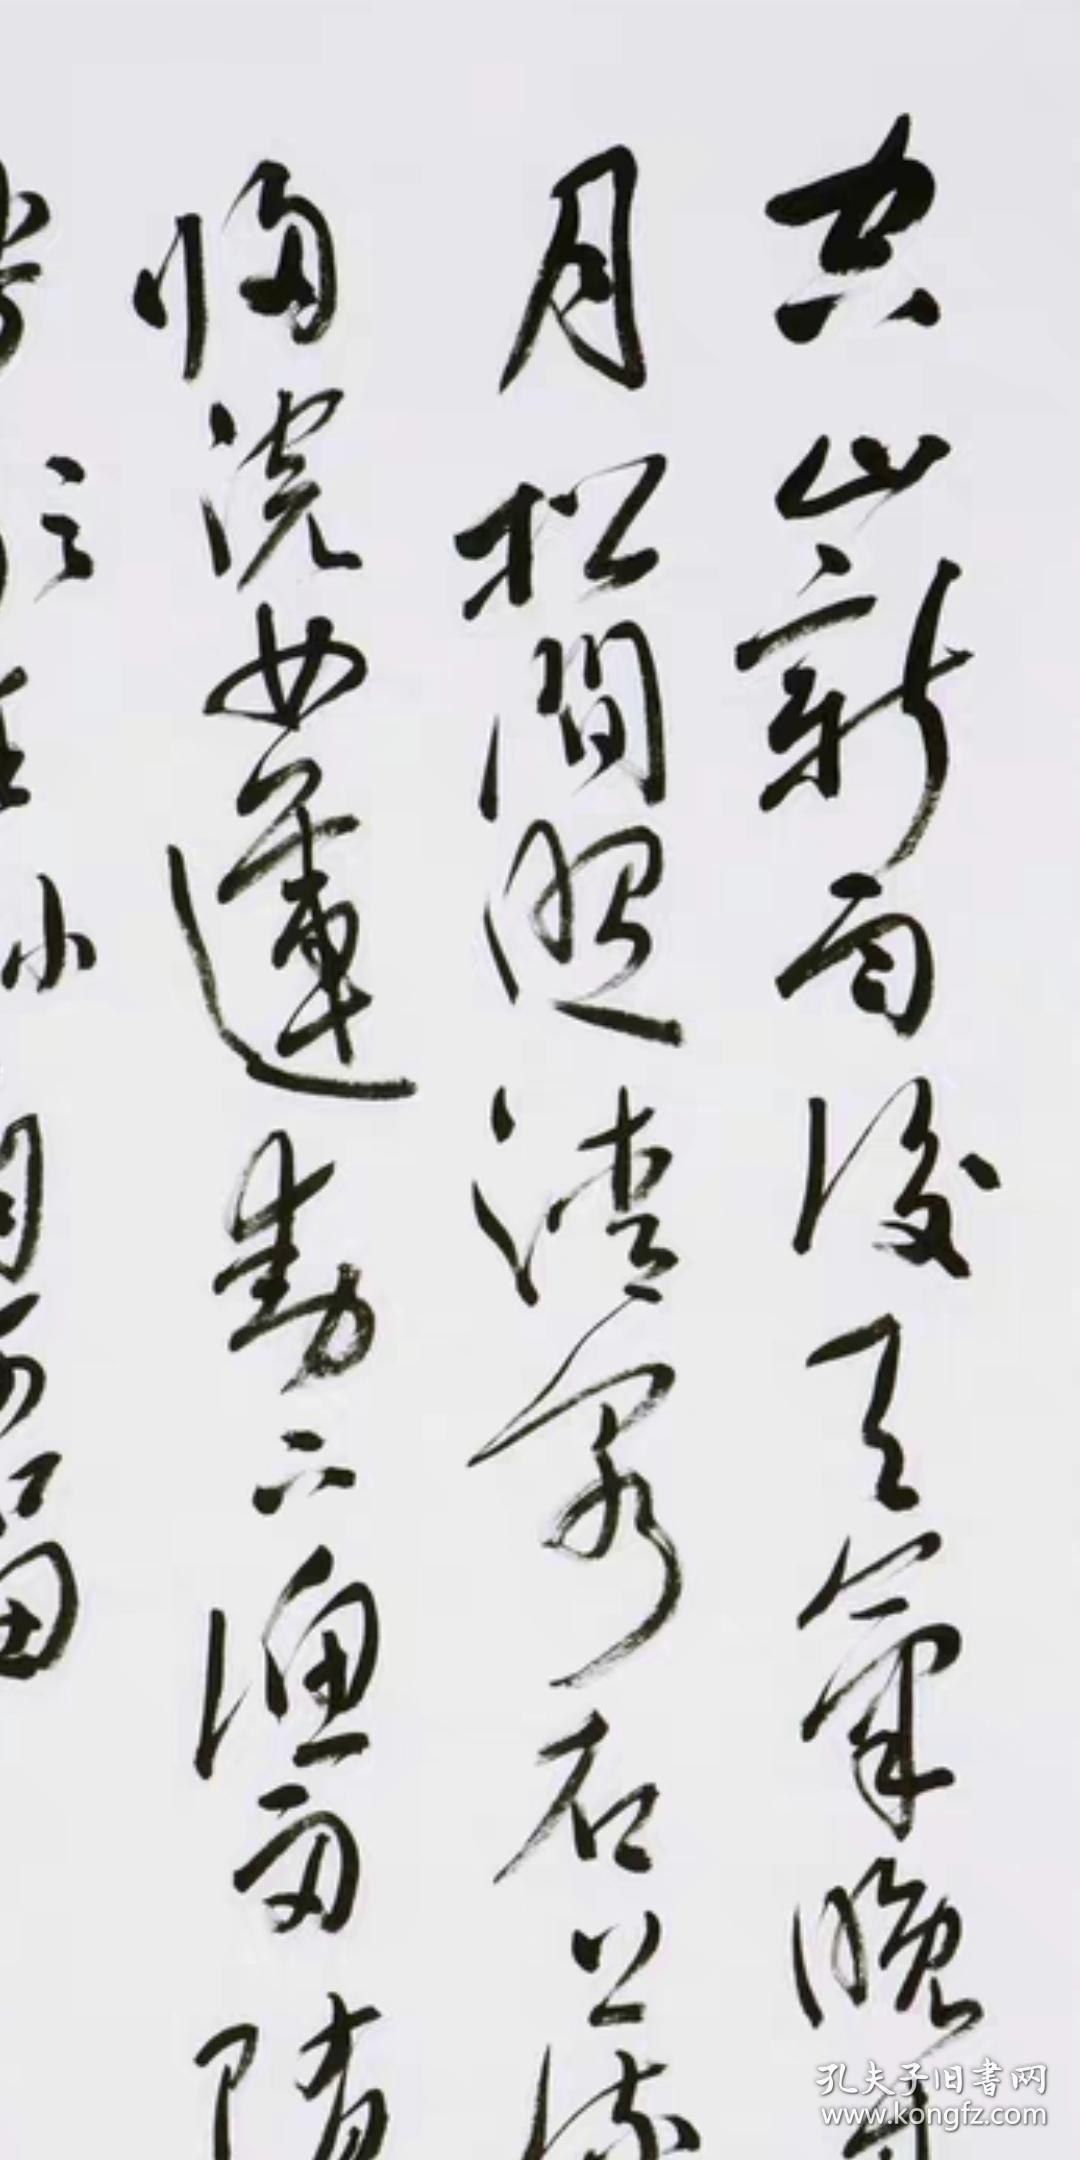 空山新雨後天氣晚來
月松間照清泉石上流
歸浣女蓮動下漁舟隨
自可留
孔夫子旧書网
www.kongfz.com